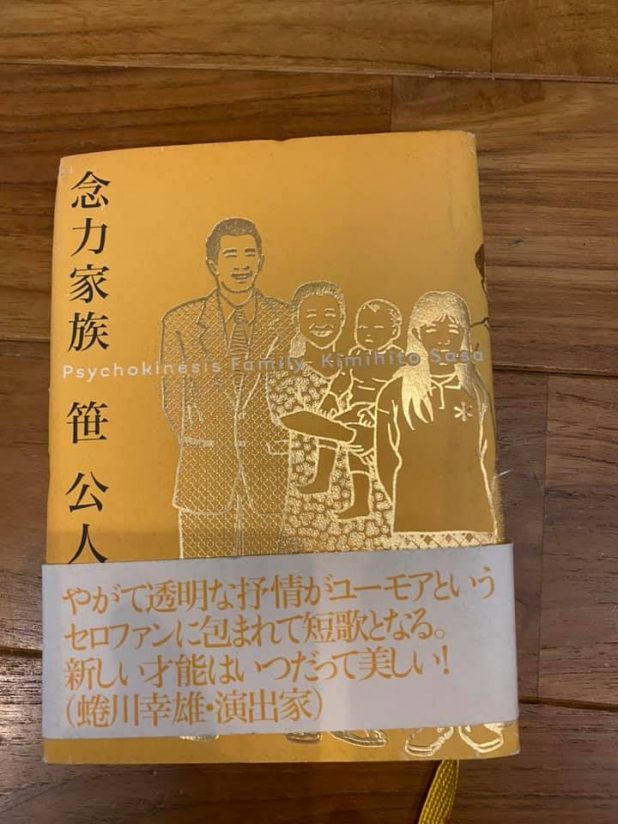 念力家族 笹 公人
Psychokinesis Family Kimihito Sasa
やがて透明な抒情がユーモアという
セロファンに包まれて短歌となる。
新しい才能はいつだって美しい!
(蜷川幸雄・演出家)